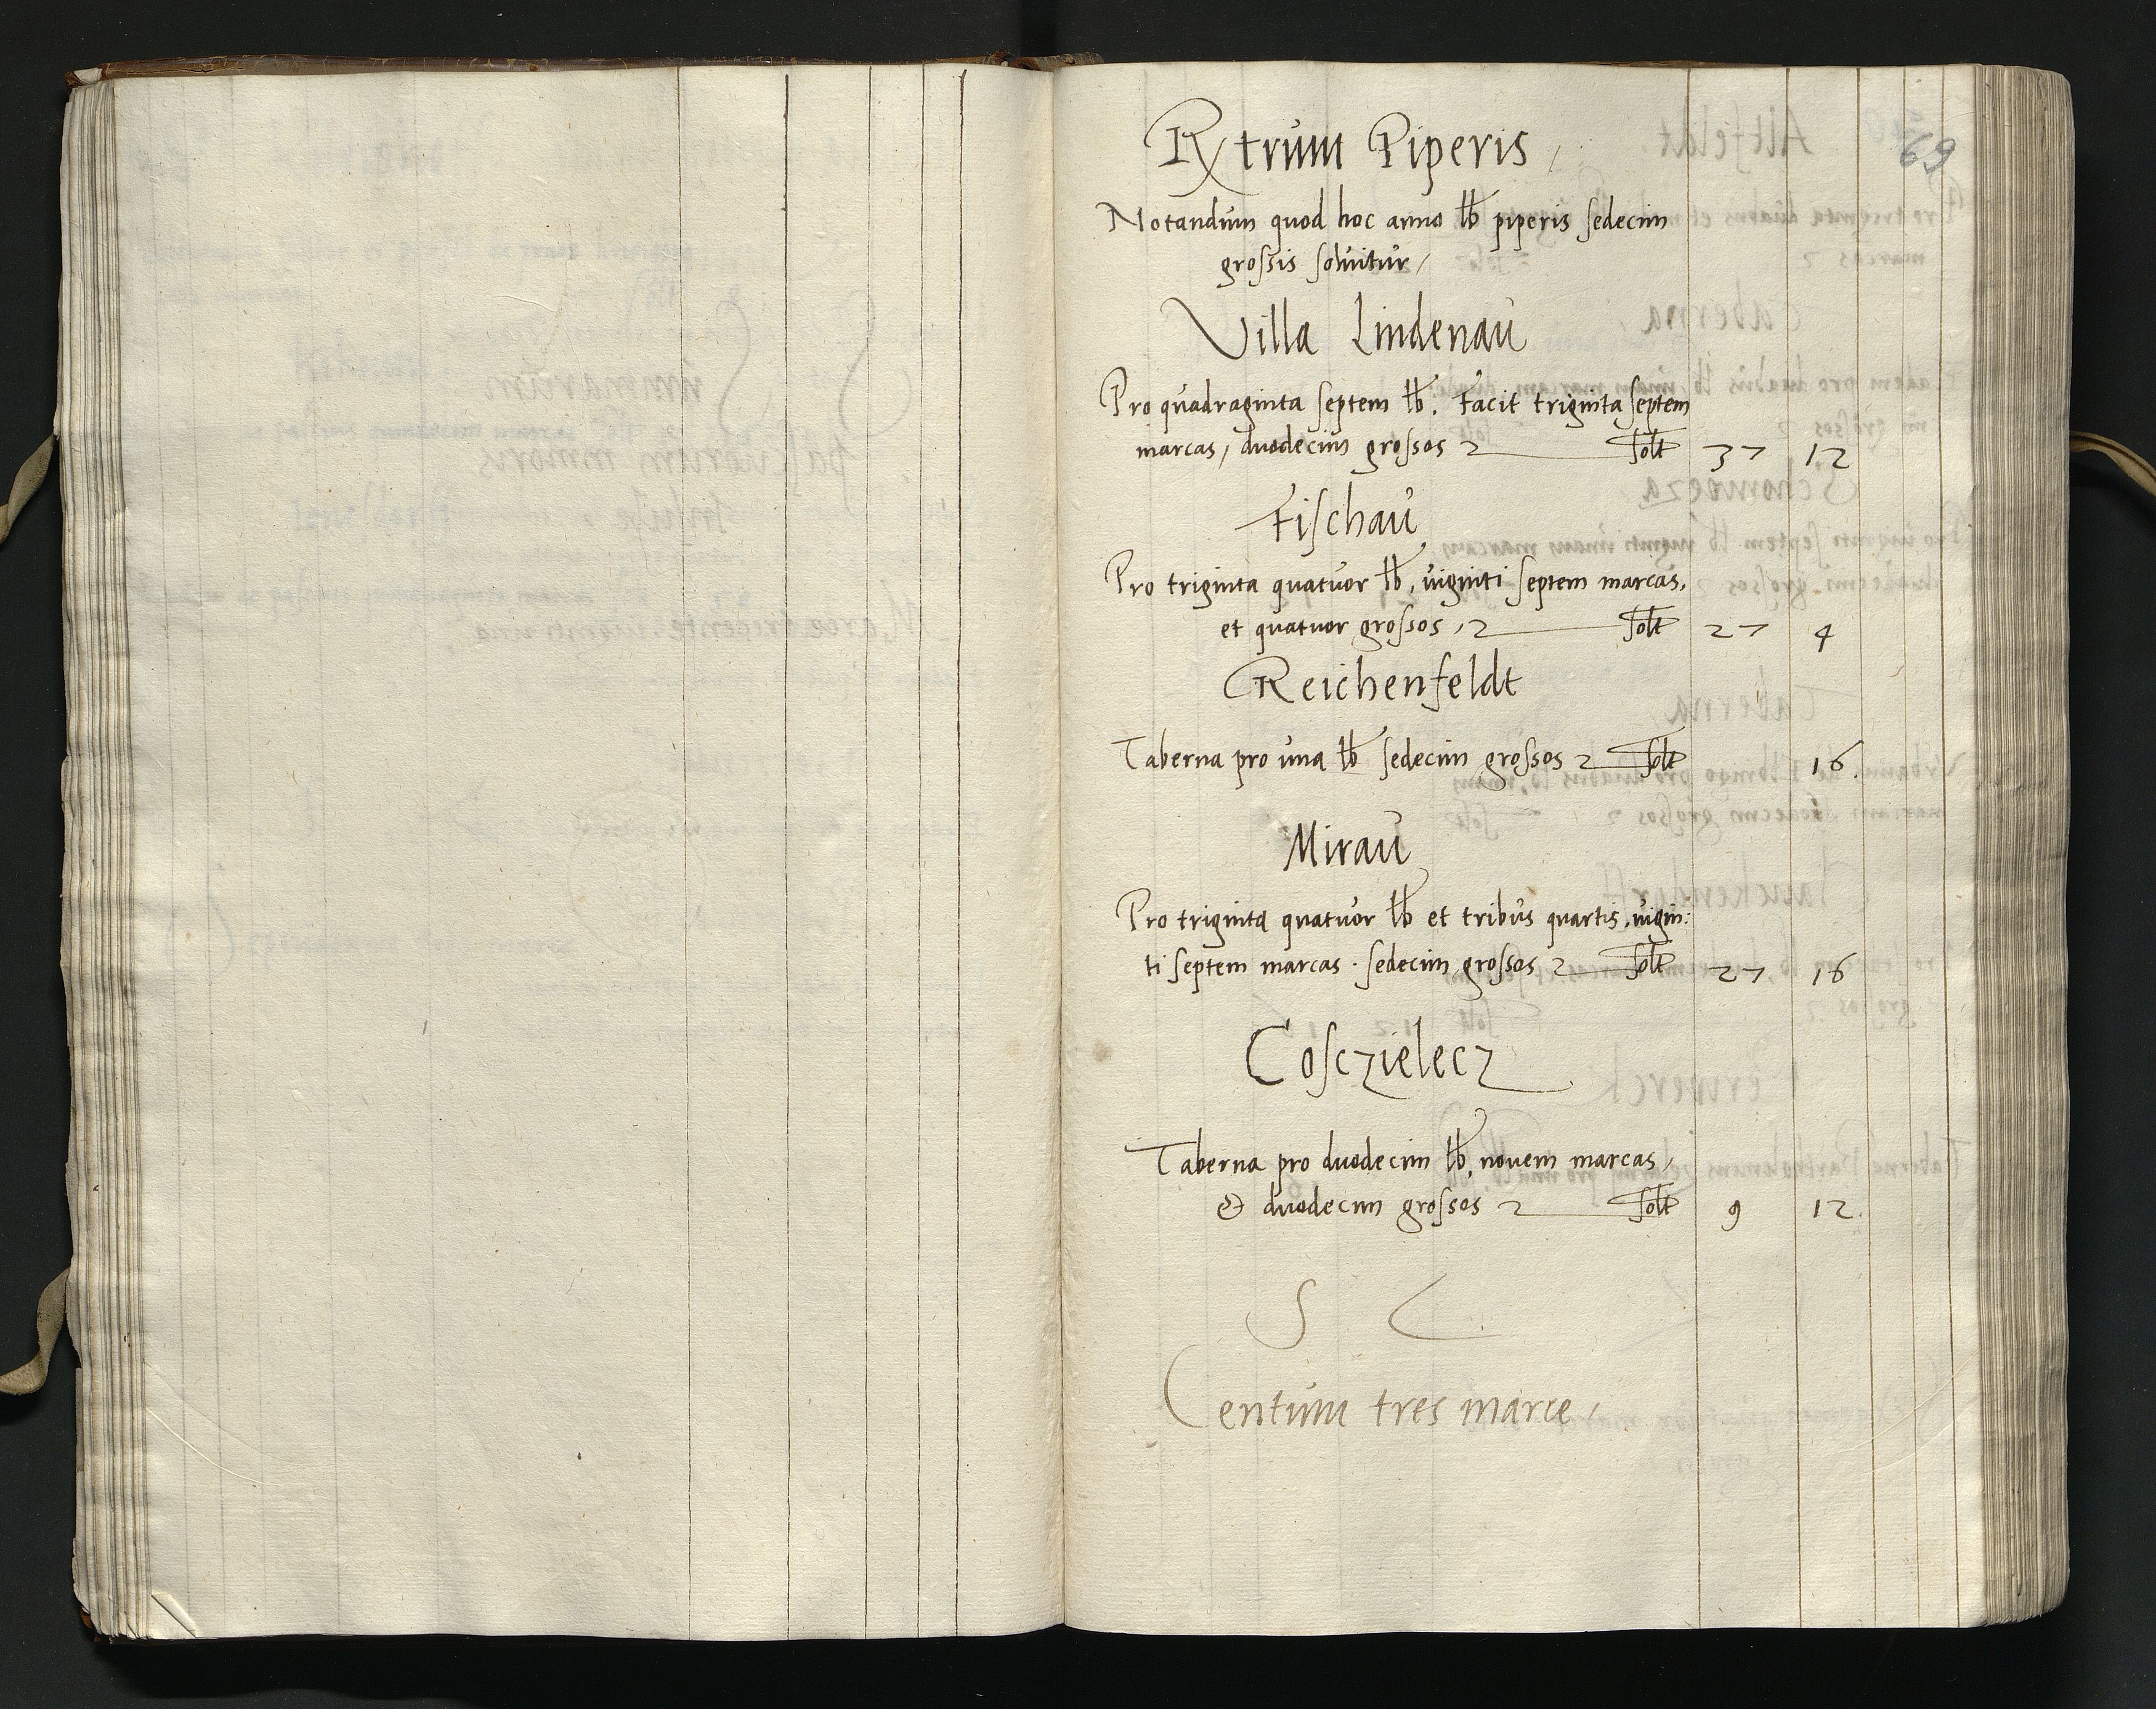 69
Rxtrum Piperis,
Notandum quod hoc anno lb piperis sedecim
grossis solvitur,
Villa Lindenau
Pro quadraginta septem lb. Facit triginta septem
marcas, duodecim grossos solt 37 12
Fischau
Pro triginta quatuor lb, viginti septem marcas,
et quatuor grossos, solt 27 4
Reichenfeldt
Taberna pro una lb sedecim grossos solt 16.
Mirau
Pro triginta quatuor lb et tribus quartis, vigin:
ti septem marcas. sedecim grossos solt 27 16
Cosczielecz
Taberna pro duodecim lb, novem marcas,
& duodecim grossos solt 9 12.
S C
Centum tres marce,